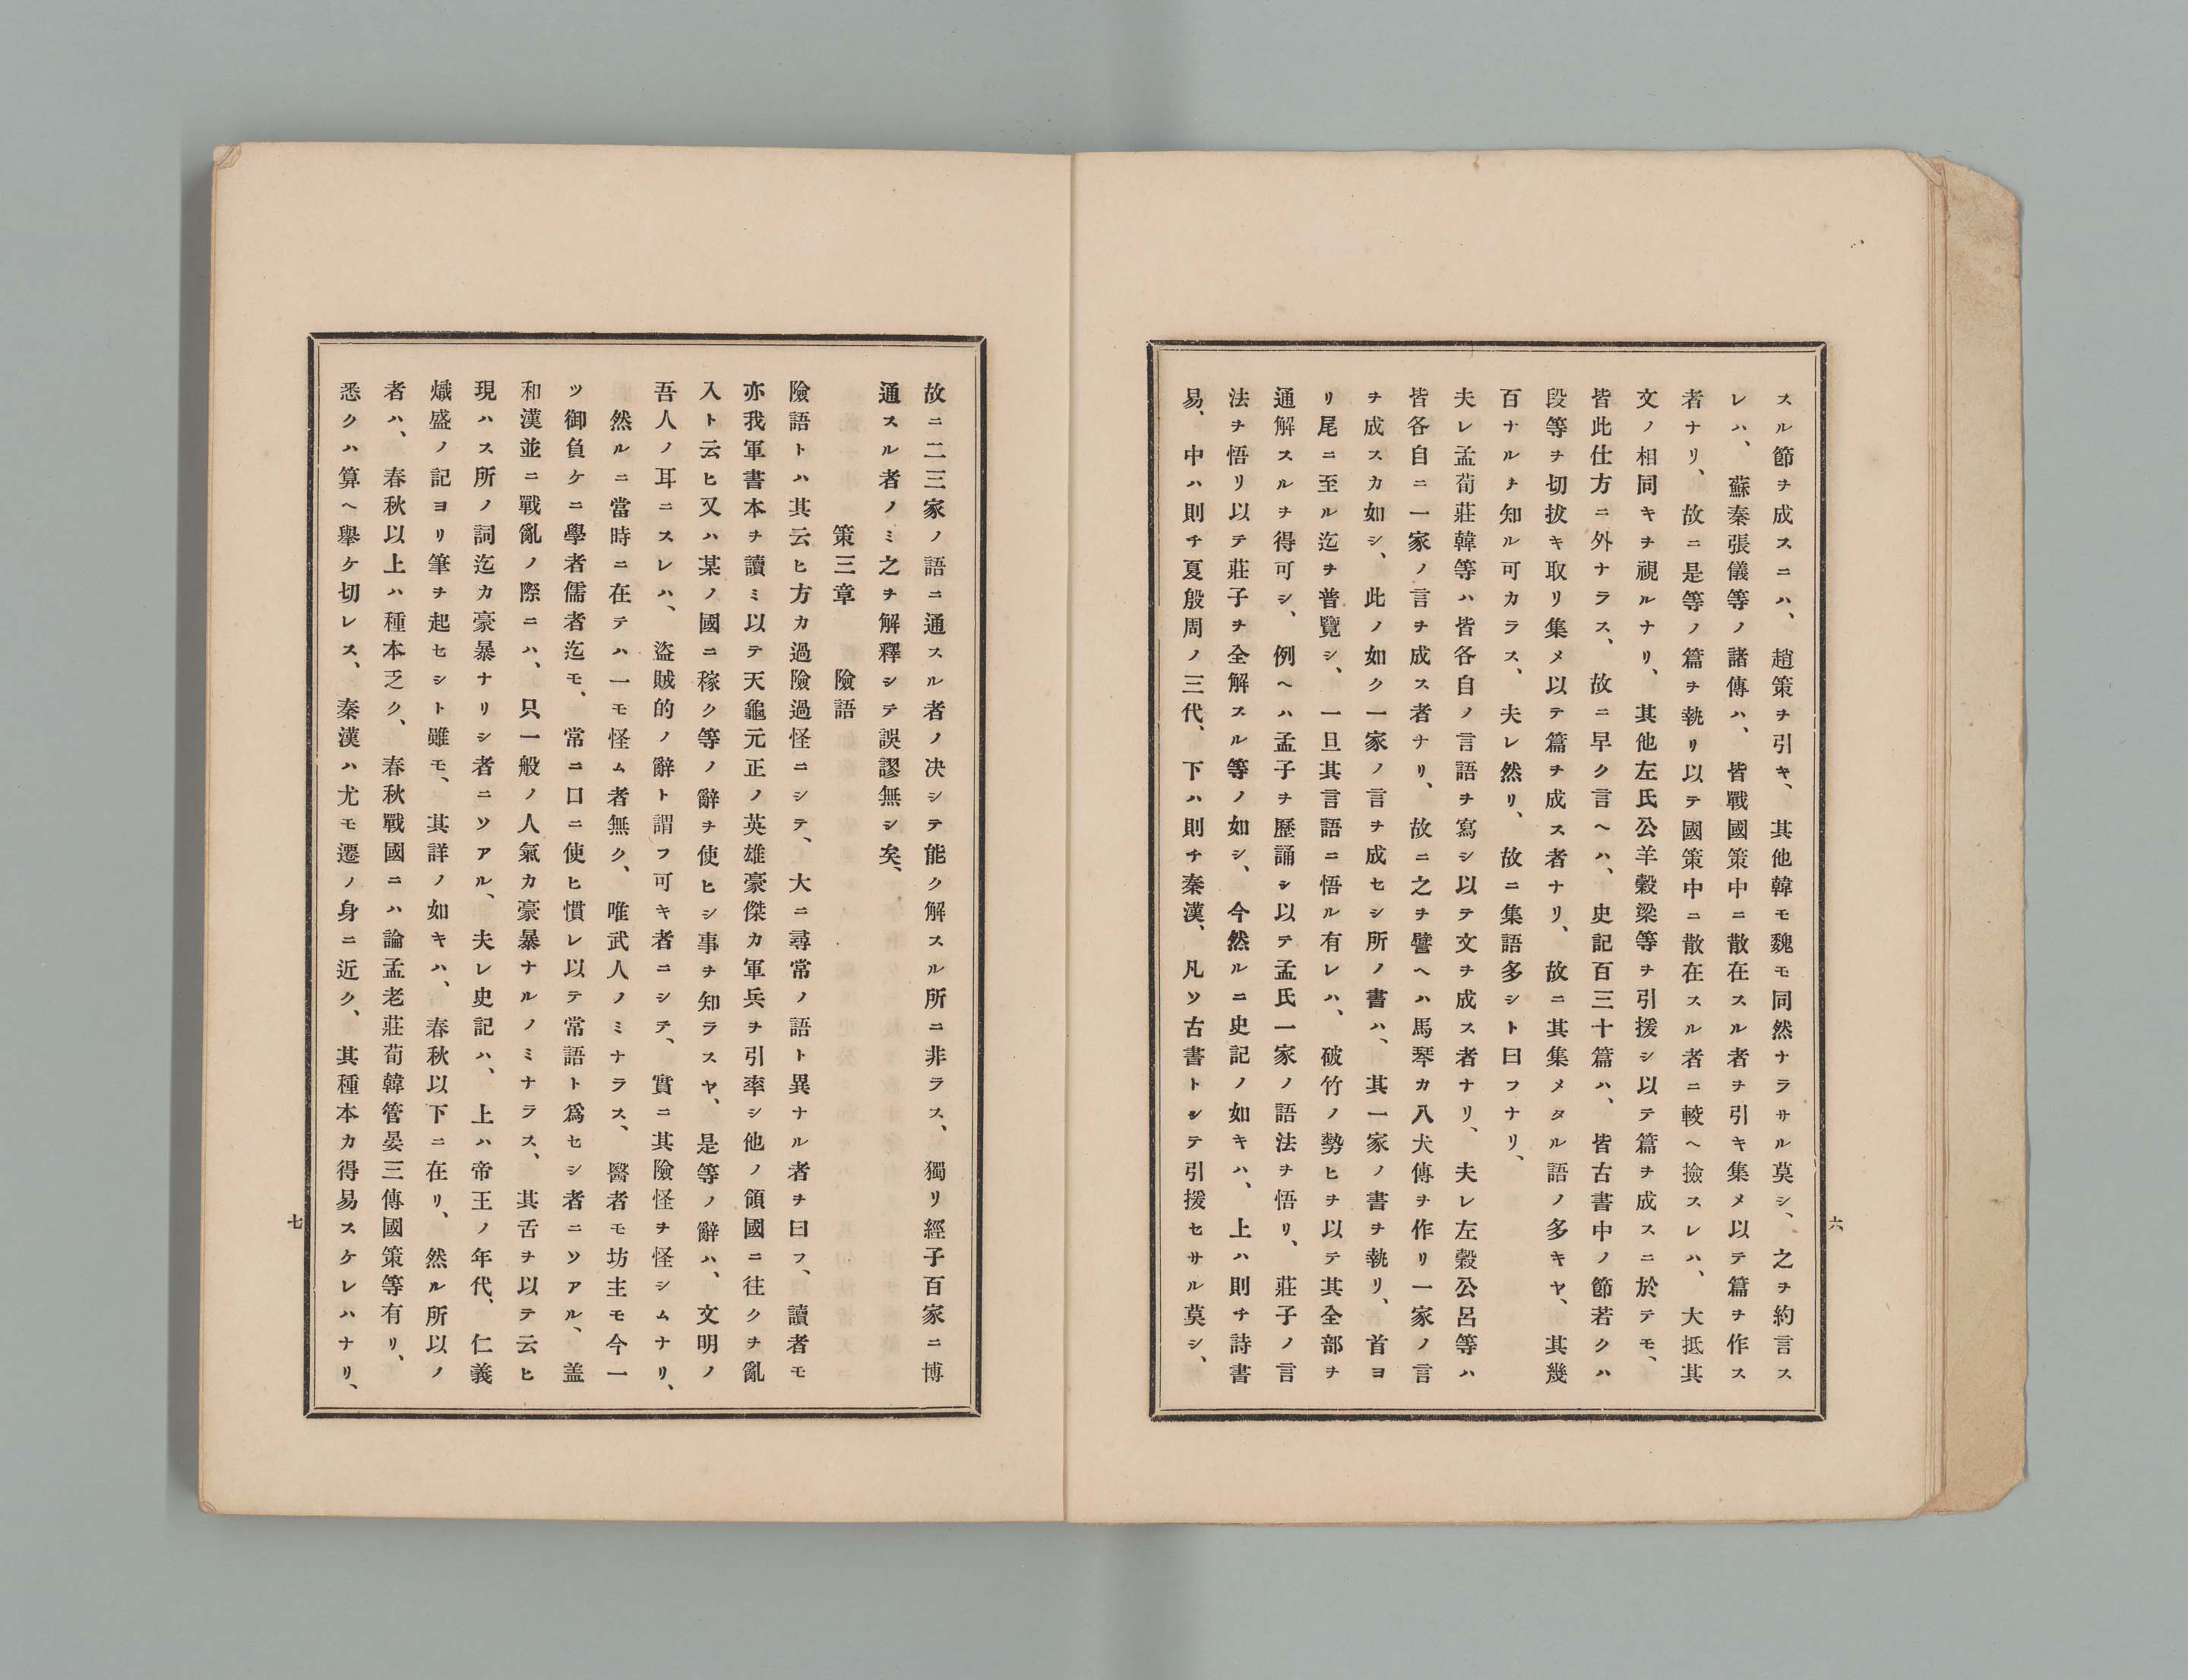 スル節ヲ成スニハ、趙策ヲ引キ、其他韓モ魏モ同然ナラサル莫シ、之ヲ約言ス
レハ、蘇秦張儀等ノ諸傳ハ、皆戰國策中ニ散在スル者ヲ引キ集メ以テ篇ヲ作ス
者ナリ、故ニ是等ノ篇ヲ執リ以テ國策中ニ散在スル者ニ較ヘ撿スレハ、大抵其
文ノ相同キヲ視ルナリ、其他左氏公羊穀梁等ヲ引援シ以テ篇ヲ成スニ於テモ、
皆此仕方ニ外ナラス、故ニ早ク言ヘハ、史記百三十篇ハ、皆古書中ノ節若クハ
段等ヲ切拔キ取リ集メ以テ篇ヲ成ス者ナリ、故ニ其集メタル語ノ多キヤ、其幾
百ナルヲ知ル可カラス、夫レ然リ、故ニ集語多シト曰フナリ、
夫レ孟荀莊韓等ハ皆各自ノ言語ヲ寫シ以テ文ヲ成ス者ナリ、夫レ左穀公呂等ハ
皆各自ニ一家ノ言ヲ成ス者ナリ、故ニ之ヲ譬ヘハ馬琴カ八犬傳ヲ作リ一家ノ言
ヲ成スカ如シ、此ノ如ク一家ノ言ヲ成セシ所ノ書ハ、其一家ノ書ヲ執リ、首ヨ
リ尾ニ至ル迄ヲ普覽シ、一旦其言語ニ悟ル有レハ、破竹ノ勢ヒヲ以テ其全部ヲ
通解スルヲ得可シ、例ヘハ孟子ヲ歷誦シ以テ孟氏一家ノ語法ヲ悟リ、莊子ノ言
法ヲ悟リ以テ莊子ヲ全解スル等ノ如シ、今然ルニ史記ノ如キハ、上ハ則チ詩書
易、中ハ則チ夏殷周ノ三代、下ハ則チ秦漢、凡ソ古書トシテ引援セサル莫シ、
六
故ニ二三家ノ語ニ通スル者ノ决シテ能ク解スル所ニ非ラス、獨リ經子百家ニ博
通スル者ノミ之ヲ解釋シテ誤謬無シ矣、
策三章　險語
險語トハ其云ヒ方カ過險過怪ニシテ、大ニ尋常ノ語ト異ナル者ヲ曰フ、讀者モ
亦我軍書本ヲ讀ミ以テ天龜元正ノ英雄豪傑カ軍兵ヲ引率シ他ノ領國ニ往クヲ亂
入ト云ヒ又ハ某ノ國ニ稼ク等ノ辭ヲ使ヒシ事ヲ知ラスヤ、是等ノ辭ハ、文明ノ
吾人ノ耳ニスレハ、盜賊的ノ辭ト謂フ可キ者ニシテ、實ニ其險怪ヲ怪シムナリ、
然ルニ當時ニ在テハ一モ怪ム者無ク、唯武人ノミナラス、醫者モ坊主モ今一
ツ御負ケニ學者儒者迄モ、常ニ口ニ使ヒ慣レ以テ常語ト爲セシ者ニソアル、盖
和漢並ニ戰亂ノ際ニハ、只一般ノ人氣カ豪暴ナルノミナラス、其舌ヲ以テ云ヒ
現ハス所ノ詞迄カ豪暴ナリシ者ニソアル、夫レ史記ハ、上ハ帝王ノ年代、仁義
熾盛ノ記ヨリ筆ヲ起セシト雖モ、其詳ノ如キハ、春秋以下ニ在リ、然ル所以ノ
者ハ、春秋以上ハ種本乏ク、春秋戰國ニハ論孟老莊荀韓管晏三傳國策等有リ、
悉クハ算ヘ擧ケ切レス、秦漢ハ尤モ遷ノ身ニ近ク、其種本カ得易スケレハナリ、
七